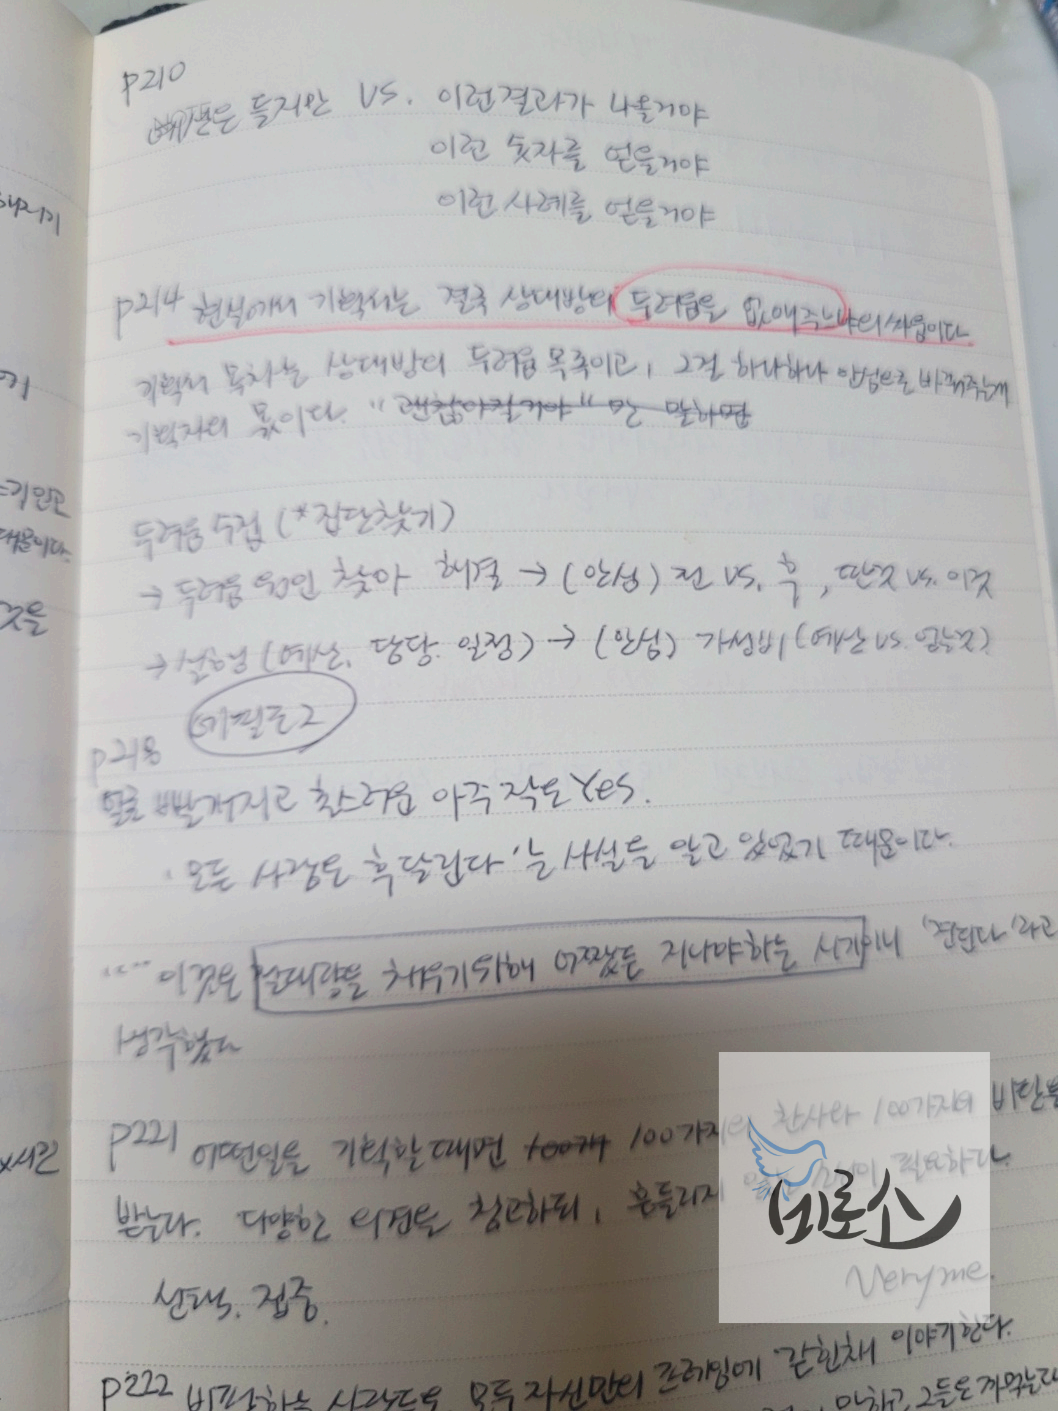 p210
은 들지만 vs. 이런 결과가 나올거야
이런 숫자를 얻을거야
이런 사례를 얻을거야
p214 현실에서 기획서는 결국 상대방의 두려움을 없애주느냐의 싸움이다
기획서 목차는 상대방의 두려움 목록이고, 그걸 하나하나 안심으로 바꿔주는게
기획자의 몫이다. "괜찮아질거야" 만 말하면
두려움 수집 (*집단찾기)
→ 두려움 원인 찾아 해결 → (안심) 전 vs. 후, 딴것 vs. 이것
→ 실행 (예산, 담당. 일정) → (안심) 가성비 (예산 vs. 얻는것)
p218
빨개지고 촌스러운 아주 작은 Yes.
'모든 사람은 후달린다'는 사실을 알고 있었기 때문이다.
이것은 절대량을 채우기위해 어쨌든 지나야하는 시기이니 '견딘다'라고
생각했다
p221 어떤일을 기획할때면 100개 100가지의 찬사와 100가지의 비난을
받는다. 다양한 의견을 참고하되, 흔들리지 소신이 필요하다.
선택. 집중.
비로소
Very me.
p222 비판하는 사람들은 모두 자신만의 프레임에 갇힌채 이야기한다.